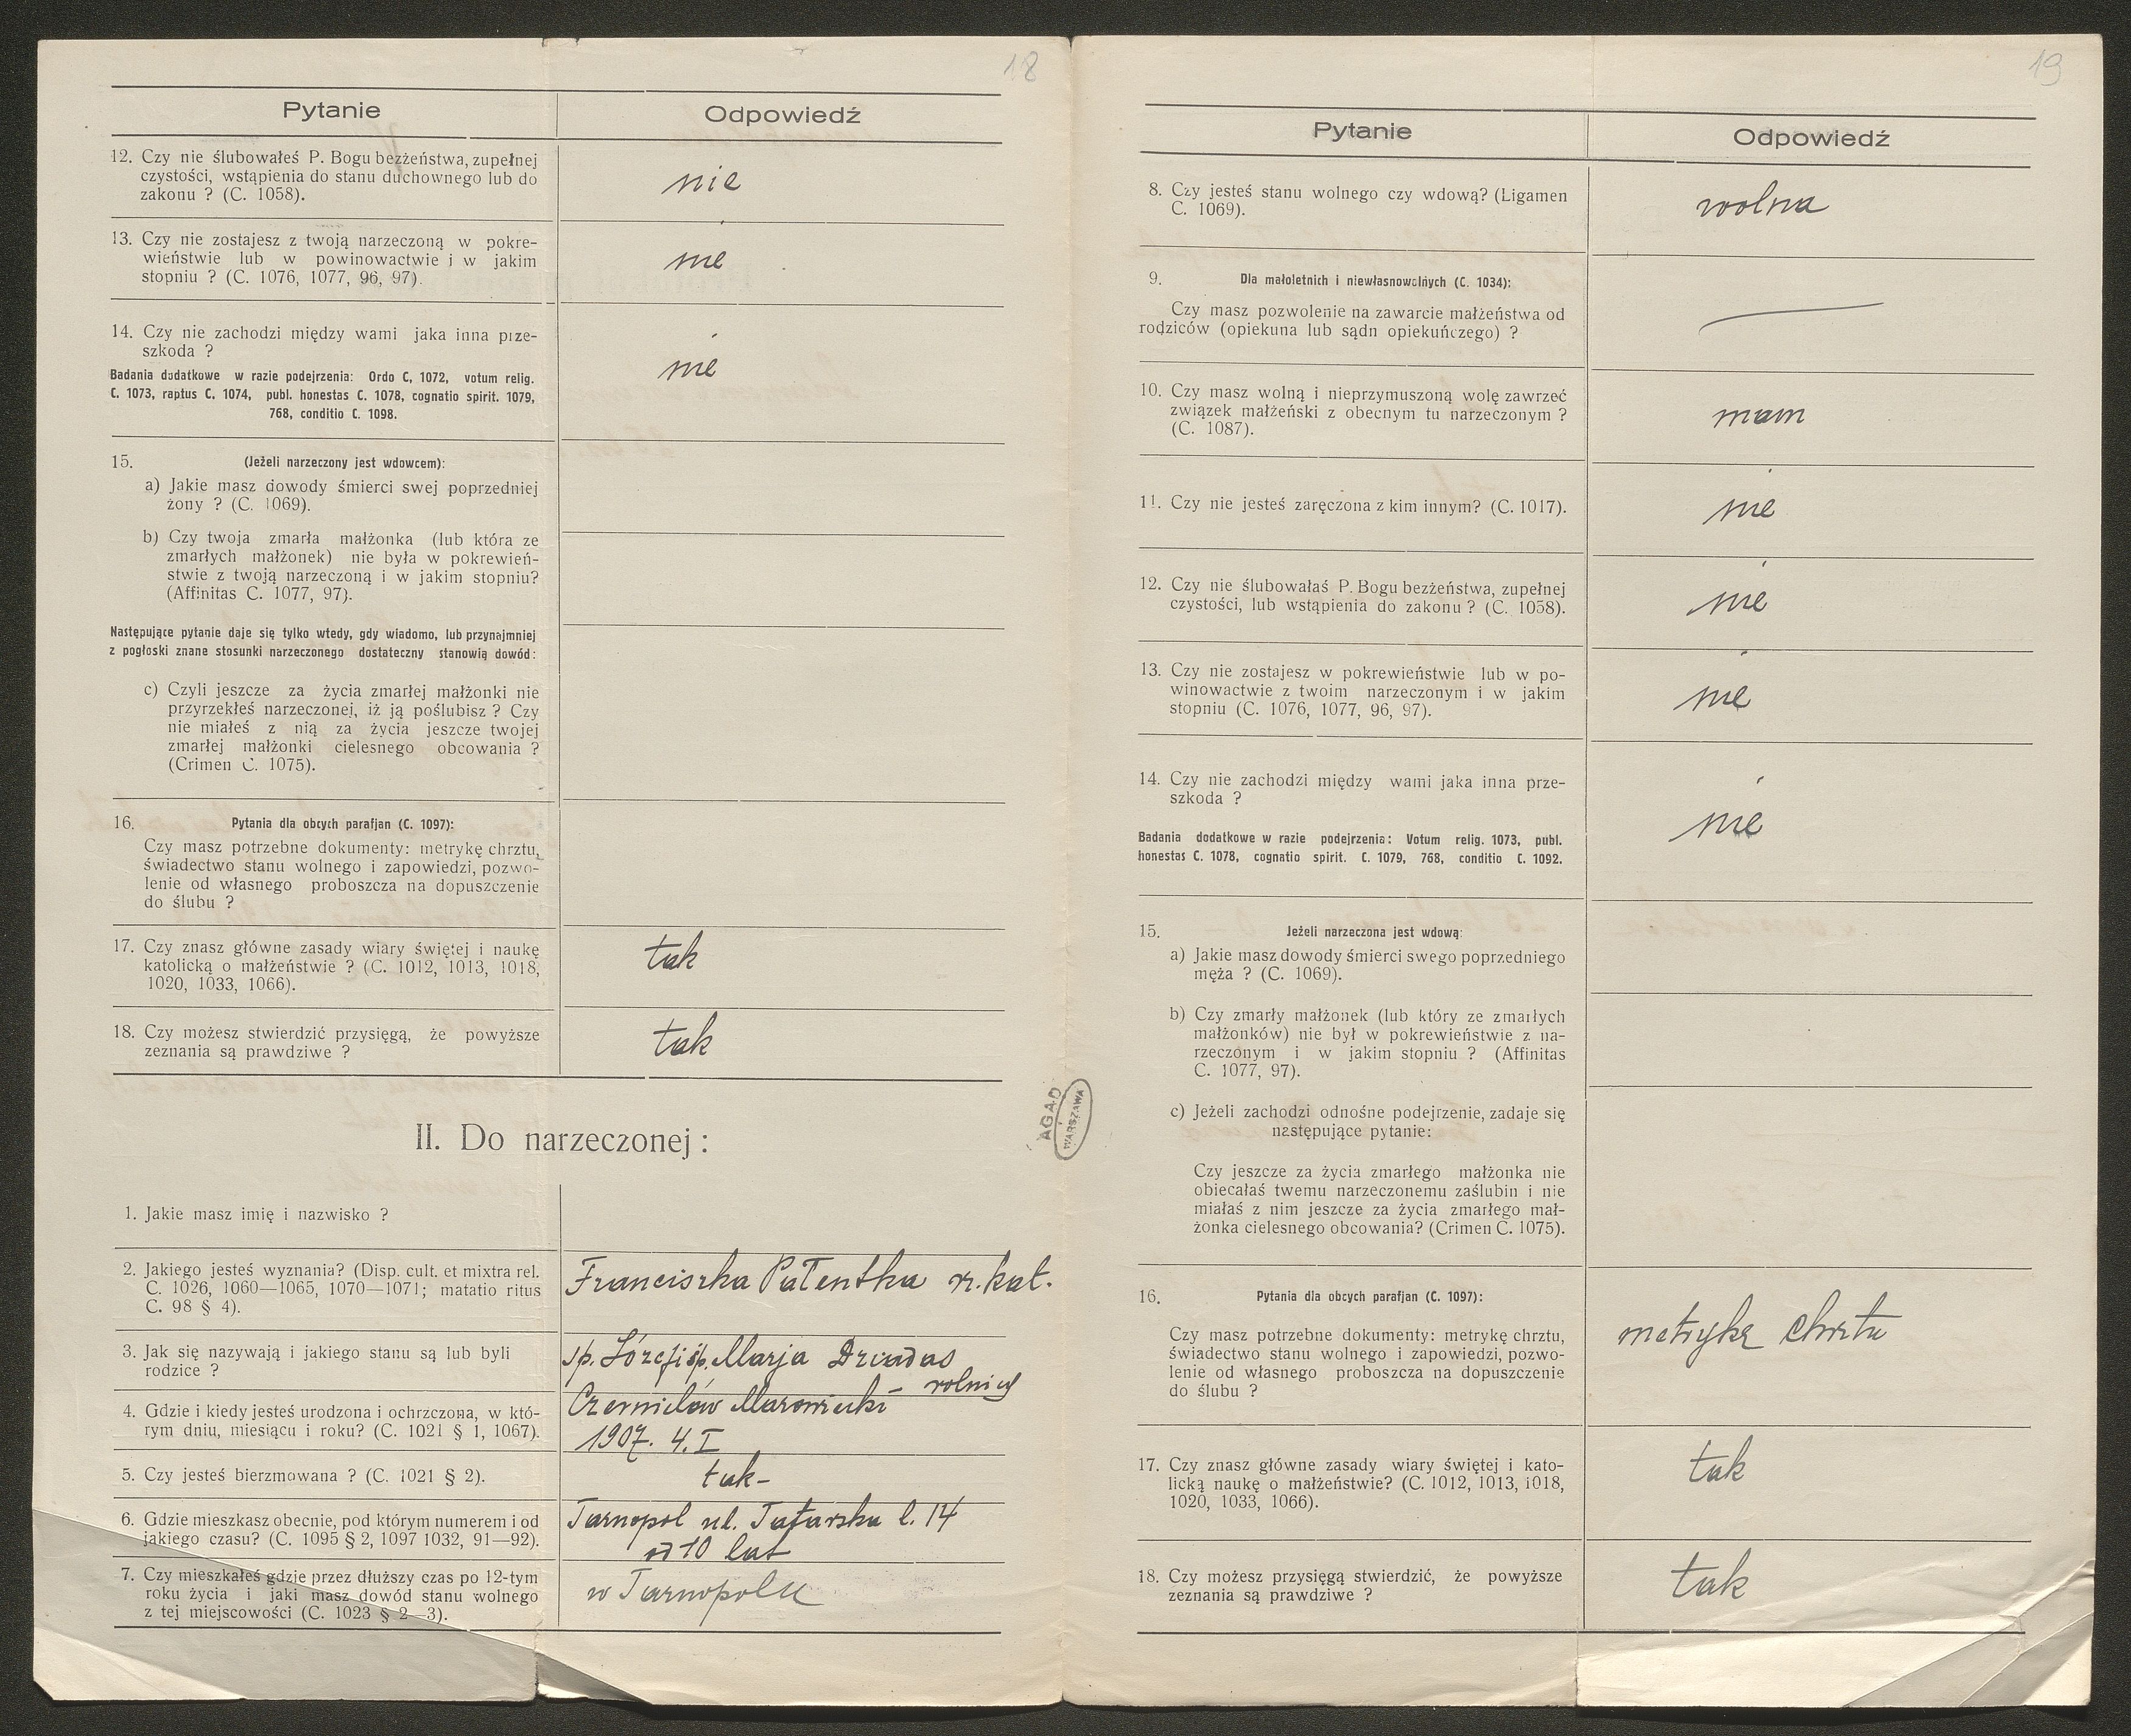 18
Pytanie
Odpowiedź
12. Czy nie ślubowałeś P. Bogu bezżeństwa, zupełnej
czystości, wstąpienia do stanu duchownego lub do
zakonu ? (C. 1058).
nie
13. Czy nie zostajesz z twoją narzeczoną w pokre-
wieństwie lub w powinowactwie i w jakim
stopniu ? (C. 1076, 1077, 96, 97).
nie
14. Czy nie zachodzi między wami jaka inna prze-
szkoda ?
nie
Badania dodatkowe w razie podejrzenia: Ordo C, 1072, votum relig.
C. 1073, raptus C. 1074, publ. honestas C. 1078, cognatio spirit. 1079,
768, conditio C. 1098.
15. (Jeżeli narzeczony jest wdowcem):
a) Jakie masz dowody śmierci swej poprzedniej
żony ? (C. 1069).
b) Czy twoja zmarła małżonka (lub która ze
zmarłych małżonek) nie była w pokrewień-
stwie z twoją narzeczoną i w jakim stopniu?
(Affinitas C. 1077, 97).
Następujące pytanie daje się tylko wtedy, gdy wiadomo, lub przynajmniej
z pogłoski znane stosunki narzeczonego dostateczny stanowią dowód:
c) Czyli jeszcze za życia zmarłej małżonki nie
przyrzekłeś narzeczonej, iż ją poślubisz ? Czy
nie miałeś z nią za życia jeszcze twojej
zmarłej małżonki cielesnego obcowania ?
(Crimen C. 1075).
16. Pytania dla obcych parafjan (C. 1097):
Czy masz potrzebne dokumenty: metrykę chrztu,
świadectwo stanu wolnego i zapowiedzi, pozwo-
lenie od własnego proboszcza na dopuszczenie
do ślubu ?
17. Czy znasz główne zasady wiary świętej i naukę
katolicką o małżeństwie ? (C. 1012, 1013, 1018,
1020, 1033, 1066).
tak
18. Czy możesz stwierdzić przysięgą, że powyższe
zeznania są prawdziwe ?
tak
II. Do narzeczonej :
1. Jakie masz imię i nazwisko ?
2. Jakiego jesteś wyznania? (Disp. cult. et mixtra rel.
C. 1026, 1060—1065, 1070—1071; matatio ritus
C. 98 § 4).
Franciszka Pałentka rz. kat.
3. Jak się nazywają i jakiego stanu są lub byli
rodzice ?
śp. Józef i śp. Marja Dziadas
rolnicy
4. Gdzie i kiedy jesteś urodzona i ochrzczona, w któ-
rym dniu, miesiącu i roku? (C. 1021 § 1, 1067).
Czernielów Mazowiecki
1907. 4. I
5. Czy jesteś bierzmowana ? (C. 1021 § 2).
tak-
6. Gdzie mieszkasz obecnie, pod którym numerem i od
jakiego czasu? (C. 1095 § 2, 1097 1032, 91—92).
Tarnopol ul. Tatarska l. 14
od 10 lat
7. Czy mieszkałeś gdzie przez dłuższy czas po 12-tym
roku życia i jaki masz dowód stanu wolnego
z tej miejscowości (C. 1023 § 2—3).
w Tarnopolu
AGAD
WARSZAWA
19
Pytanie
Odpowiedź
8. Czy jesteś stanu wolnego czy wdową? (Ligamen
C. 1069).
wolna
9. Dla małoletnich i niewłasnowolnych (C. 1034):
Czy masz pozwolenie na zawarcie małżeństwa od
rodziców (opiekuna lub sądn opiekuńczego) ?
10. Czy masz wolną i nieprzymuszoną wolę zawrzeć
związek małżeński z obecnym tu narzeczonym ?
(C. 1087).
mam
11. Czy nie jesteś zaręczona z kim innym? (C. 1017).
nie
12. Czy nie ślubowałaś P. Bogu bezżeństwa, zupełnej
czystości, lub wstąpienia do zakonu ? (C. 1058).
nie
13. Czy nie zostajesz w pokrewieństwie lub w po-
winowactwie z twoim narzeczonym i w jakim
stopniu (C. 1076, 1077, 96, 97).
nie
14. Czy nie zachodzi między wami jaka inna prze-
szkoda ?
nie
Badania dodatkowe w razie podejrzenia: Votum relig. 1073, publ.
honestas C. 1078, cognatio spirit. C. 1079, 768, conditio C. 1092.
15. Jeżeli narzeczona jest wdową:
a) Jakie masz dowody śmierci swego poprzedniego
męża ? (C. 1069).
b) Czy zmarły małżonek (lub który ze zmarłych
małżonków) nie był w pokrewieństwie z na-
rzeczonym i w jakim stopniu ? (Affinitas
C. 1077, 97).
c) Jeżeli zachodzi odnośne podejrzenie, zadaje się
następujące pytanie:
Czy jeszcze za życia zmarłego małżonka nie
obiecałaś twemu narzeczonemu zaślubin i nie
miałaś z nim jeszcze za życia zmarłego mał-
żonka cielesnego obcowania? (Crimen C. 1075).
16. Pytania dla obcych parafjan (C. 1097):
Czy masz potrzebne dokumenty: metrykę chrztu,
świadectwo stanu wolnego i zapowiedzi, pozwo-
lenie od własnego proboszcza na dopuszczenie
do ślubu ?
metrykę chrztu
17. Czy znasz główne zasady wiary świętej i kato-
licką naukę o małżeństwie? (C. 1012, 1013, 1018,
1020, 1033, 1066).
tak
18. Czy możesz przysięgą stwierdzić, że powyższe
zeznania są prawdziwe ?
tak